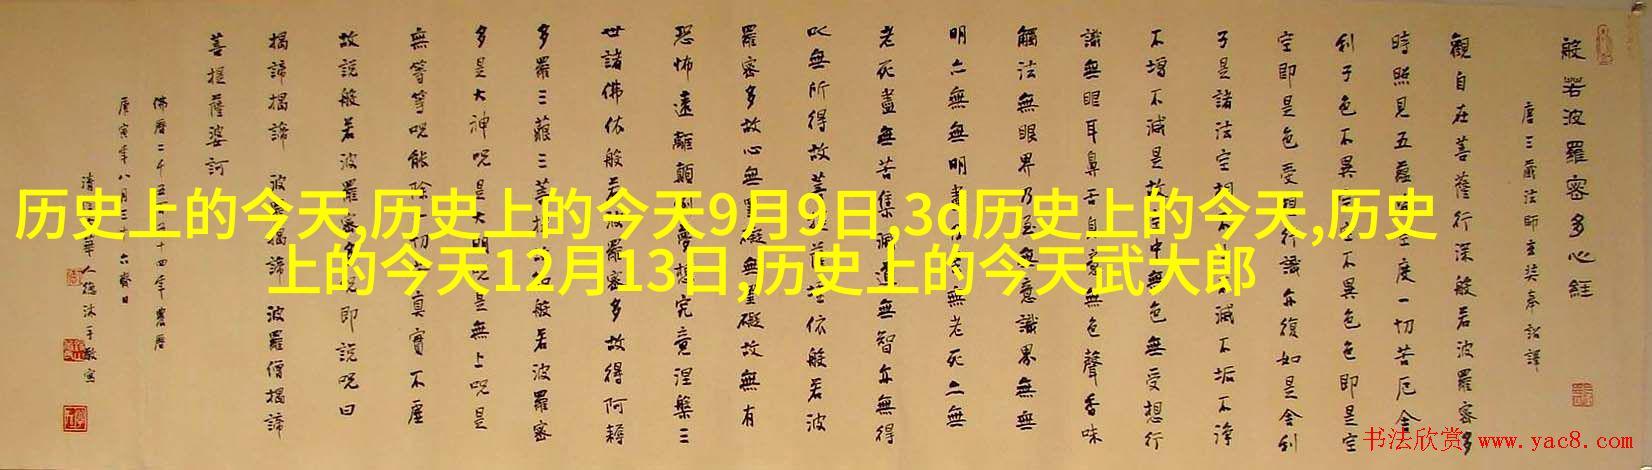 历史上的今天,历史上的今天9月9日,3d历史上的今天,历史
上的今天12月13日,历史上的今天武大郎
般若波羅密多心經
唐三藏法師玄奘奉詔譯
觀自在菩薩行深般若波羅密多
時照見五蘊皆空度一切苦厄舍
利子色不異空空不異色色即是空
空即是色受想行識亦復如是舍利
子是諸法空相不生不滅不垢不淨
不增不減是故空中無色無受想行
識無眼耳鼻舌身意無色聲香味
觸法無眼界乃至無意識界無無
明亦無無明盡乃至無老死亦無
老死盡無苦集滅道無智亦無得
以無所得故菩提薩埵依般若波
羅密多故心無罣礙無罣礙故無有
恐怖遠離顛倒夢想究竟涅槃三
世諸佛依般若波羅密多故得阿耨
多羅三藐三菩提故知般若波羅密
多是大神呪是大明呪是無上呪是
無等等呪能除一切苦真實不虛
故說般若波羅密多呪即說呪曰
揭諦揭諦 波羅揭諦 波羅僧揭諦
菩提薩婆訶
佛曆二千五百五十四年農曆
庚寅年八月三十六齋日
清 華人德沐手敬寫
书法欣赏 www.yac8.com